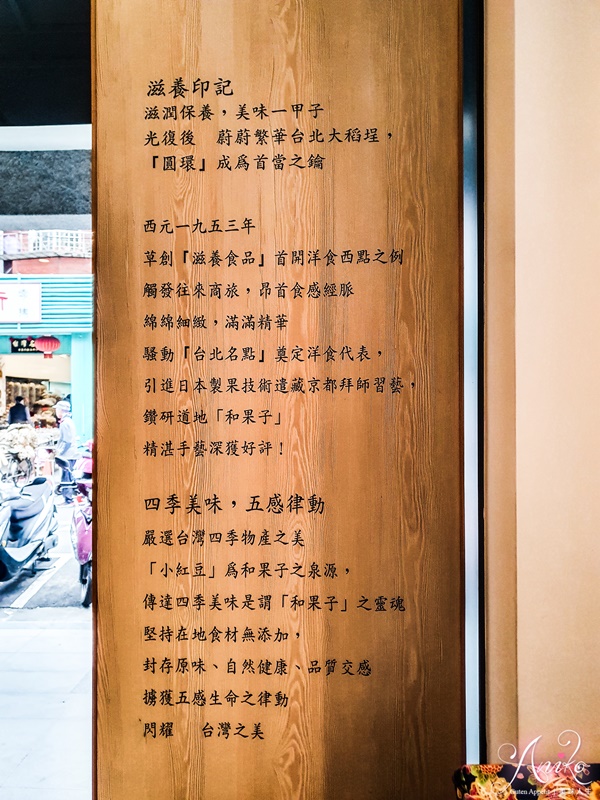 滋養印記
滋潤保養，美味一甲子
光復後　蔚蔚繁華台北大稻埕，
『圓環』成為首當之鑰
西元一九五三年
草創『滋養食品』首開洋食西點之例
觸發往來商旅，昂首食感經脈
綿綿細緻，滿滿精華
騷動『台北名點』奠定洋食代表，
引進日本製果技術遣藏京都拜師習藝，
鑽研道地「和果子」
精湛手藝深獲好評！
四季美味，五感律動
嚴選台灣四季物產之美
「小紅豆」為和果子之泉源，
傳達四季美味是謂「和果子」之靈魂
堅持在地食材無添加，
封存原味、自然健康、品質交感
擄獲五感生命之律動
閃耀　台灣之美
Anko